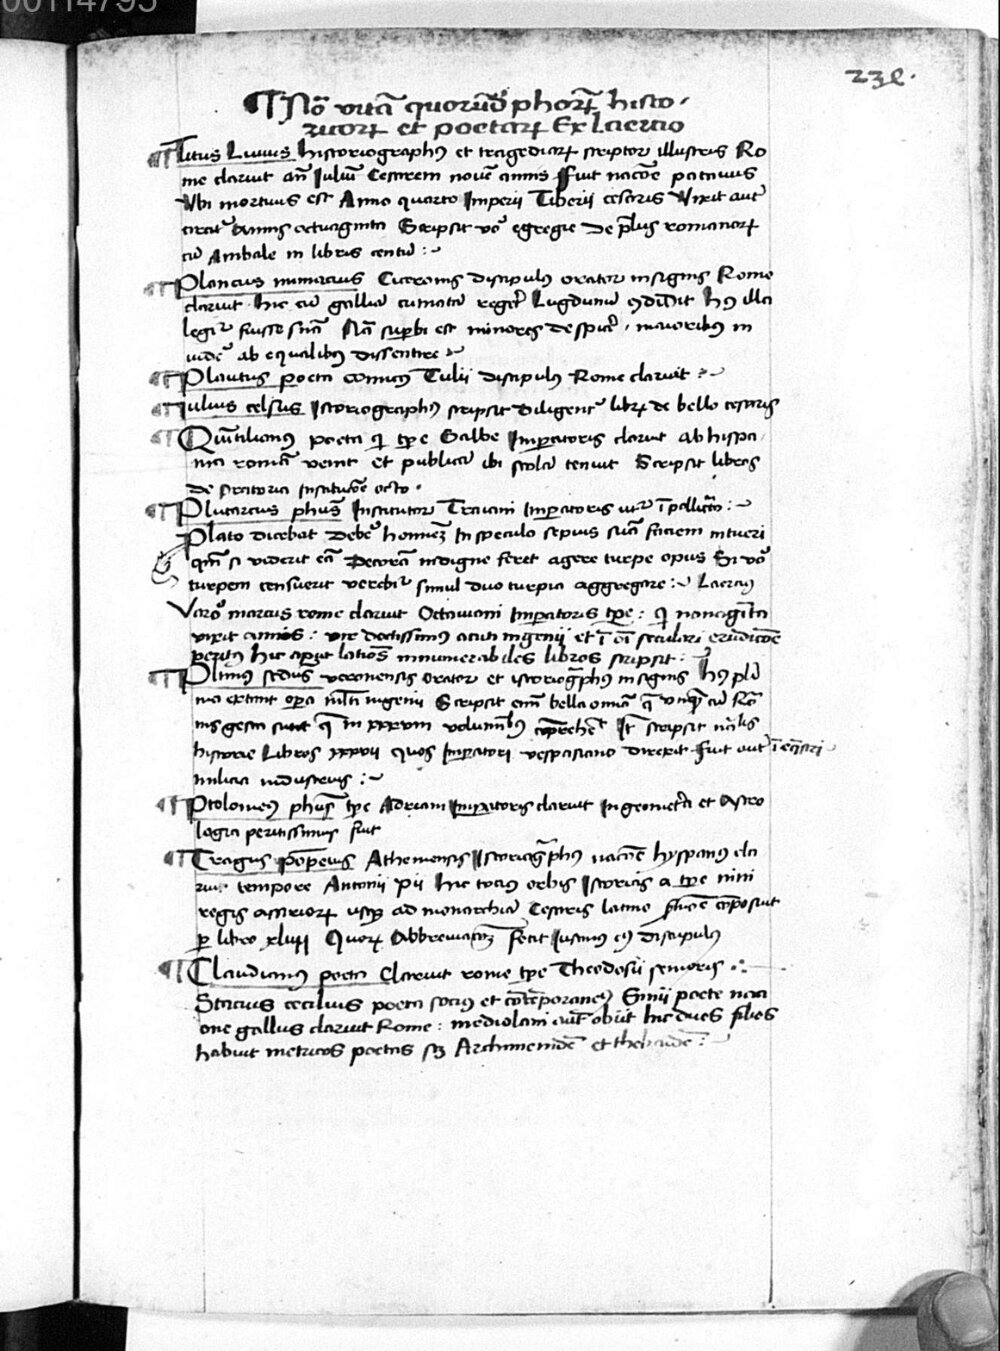 00114795
232.
¶ Nõ vitã quorũdã phorꝝ histo-
ricorꝝ et poetarꝝ Ex laercio
¶ Titus Livius historiographꝰ et tragediarꝝ scriptor illustris Ro
me claruit añ Iuliũ Cesarem novẽ annis Fuit nacõe patavus
Ubi mortuus est Anno quarto Imperii Tiberii cesaris Vixit autẽ
annis octuaginta Scripsit vº egregie De p̃lijs romanorꝝ
cũ Anibale in libris centũ :~
¶ Plancus numacius Ciceronis discipulꝰ orator insignis Rome
claruit hic cũ galliã comatã regeret Lugdunũ ɔdidit hꝰ illa
legit fuisse sñia Nã supbi est minores despicere maioribꝰ in
videre ab equalibꝰ dissentire :~
¶ Plautus poeta comicꝰ Tulii discipulꝰ Rome claruit :~
¶ Iulius celsus Istoriographꝰ scripsit diligenter libꝝ de bello cesaris
¶ Quĩtilianꝰ poeta qͥ tpe Galbe Impatoris claruit ab hispa
nia romã venit et publicã ibi scolã tenuit Scripsit libros
de oratoria Institucõe octo .
¶ Plutarcus phus Institutor Traiani Impatoris
Plato dicebat debere hominẽ In speculo sepius suã faciem intueri
qm̃ si viderit eã decorã indigne feret agere turpe opus Si vº
turpem censuerit verebit simul duo turpia aggregare :~ Laercius
Varo marcus rome claruit Octaviani Impatoris tpe : qͥ nonagĩta
vixit annos : vir doctissimus acuti ingenii et ĩ oĩ seculari erudicõe
peritꝰ hic apud latiõs innumerabiles libros scripsit :
¶ Plinius scdus veronensis orator et istoriographus insignis hꝰ pl'i
ma extant opa mlti ingenii Scripsit em̃ bella omĩa q̃ unqͣ cũ Ro
nis gesta sunt q̃ in xxxvii voluminibꝰ cõprehẽ Itẽ scripsit nãlis
historie Libros xxxvii quos Impatori vespasiano direxit Fuit autẽ ĩ
milicia industrius :~
¶ Ptolomeꝰ phus tpe Adriani Impatoris claruit In geometͥa et Astro
logia peritissimus fuit
¶ Trogus Pompeius Atheniensis Istoriogͣphꝰ nacõe hyspanꝰ cla
ruit tempore Antonii pii hic tocius orbis Istorias a tpe nini
regis assiriorꝝ usqꝫ ad monarchiã Cesaris latino cõposuit
ꝑ libro xliiii Quorꝝ Abbreviacõꝫ fecit Iustinus eiꝰ discipulꝰ
¶ Claudianus poeta Claruit rome tpe Theodosii senioris .:
Stacius cecilius poeta socius et cõtẽporaneꝰ Enii poete naci
one gallus claruit Rome : mediolani autẽ obiit hic duos libros
habuit metricos poetas sꝫ Archinenidẽ et thebaidẽ :~